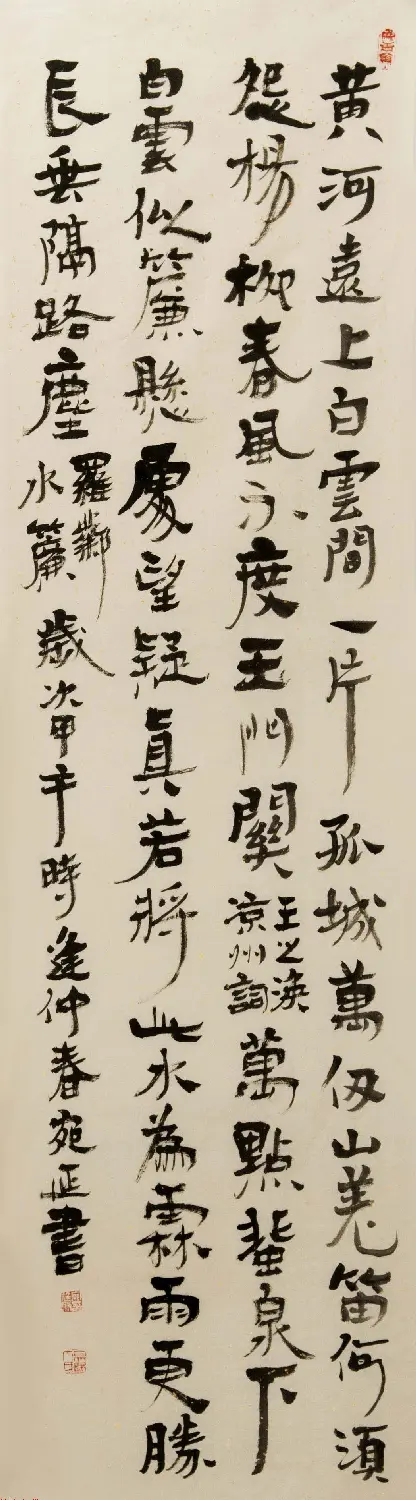 黄河遠上白雲間一片孤城萬仞山羗笛何須
怨楊柳春風不度玉門關王之渙凉州詞萬點蜚泉下
白雲似簾懸處望疑真若將此水為霖雨更勝
長垂隔路塵羅鄴水簾歲次甲午時逢仲春宛延書